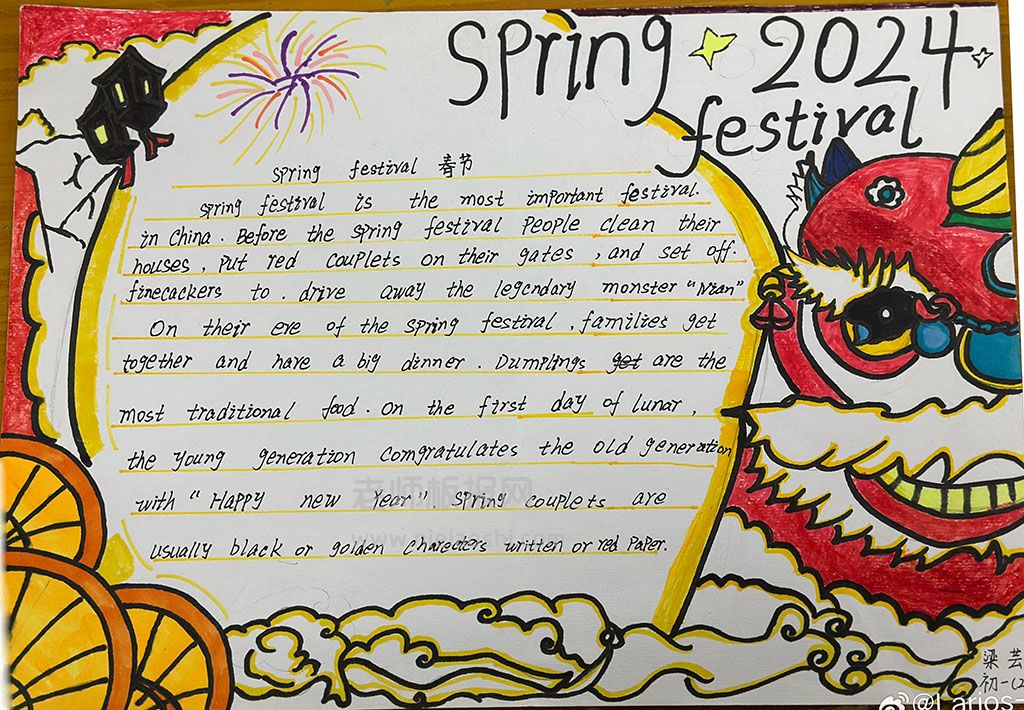 Spring 2024
festival
spring festival 春节
spring festival is the most important festival.
in China. Before the spring festival People clean their
houses, Put red couplets on their gates, and set off.
finecackers to. drive away the legendary monster "Nian"
On their eve of the spring festival, families get
together and have a big dinner. Dumplings get are the
most traditional food. On the first day of lunar,
the young generation comgratulates the old generation
with "Happy new Year". Spring couplets are
usually black or golden charecters written or red Paper.
老师板报网
梁芸
初一(2
@Larios